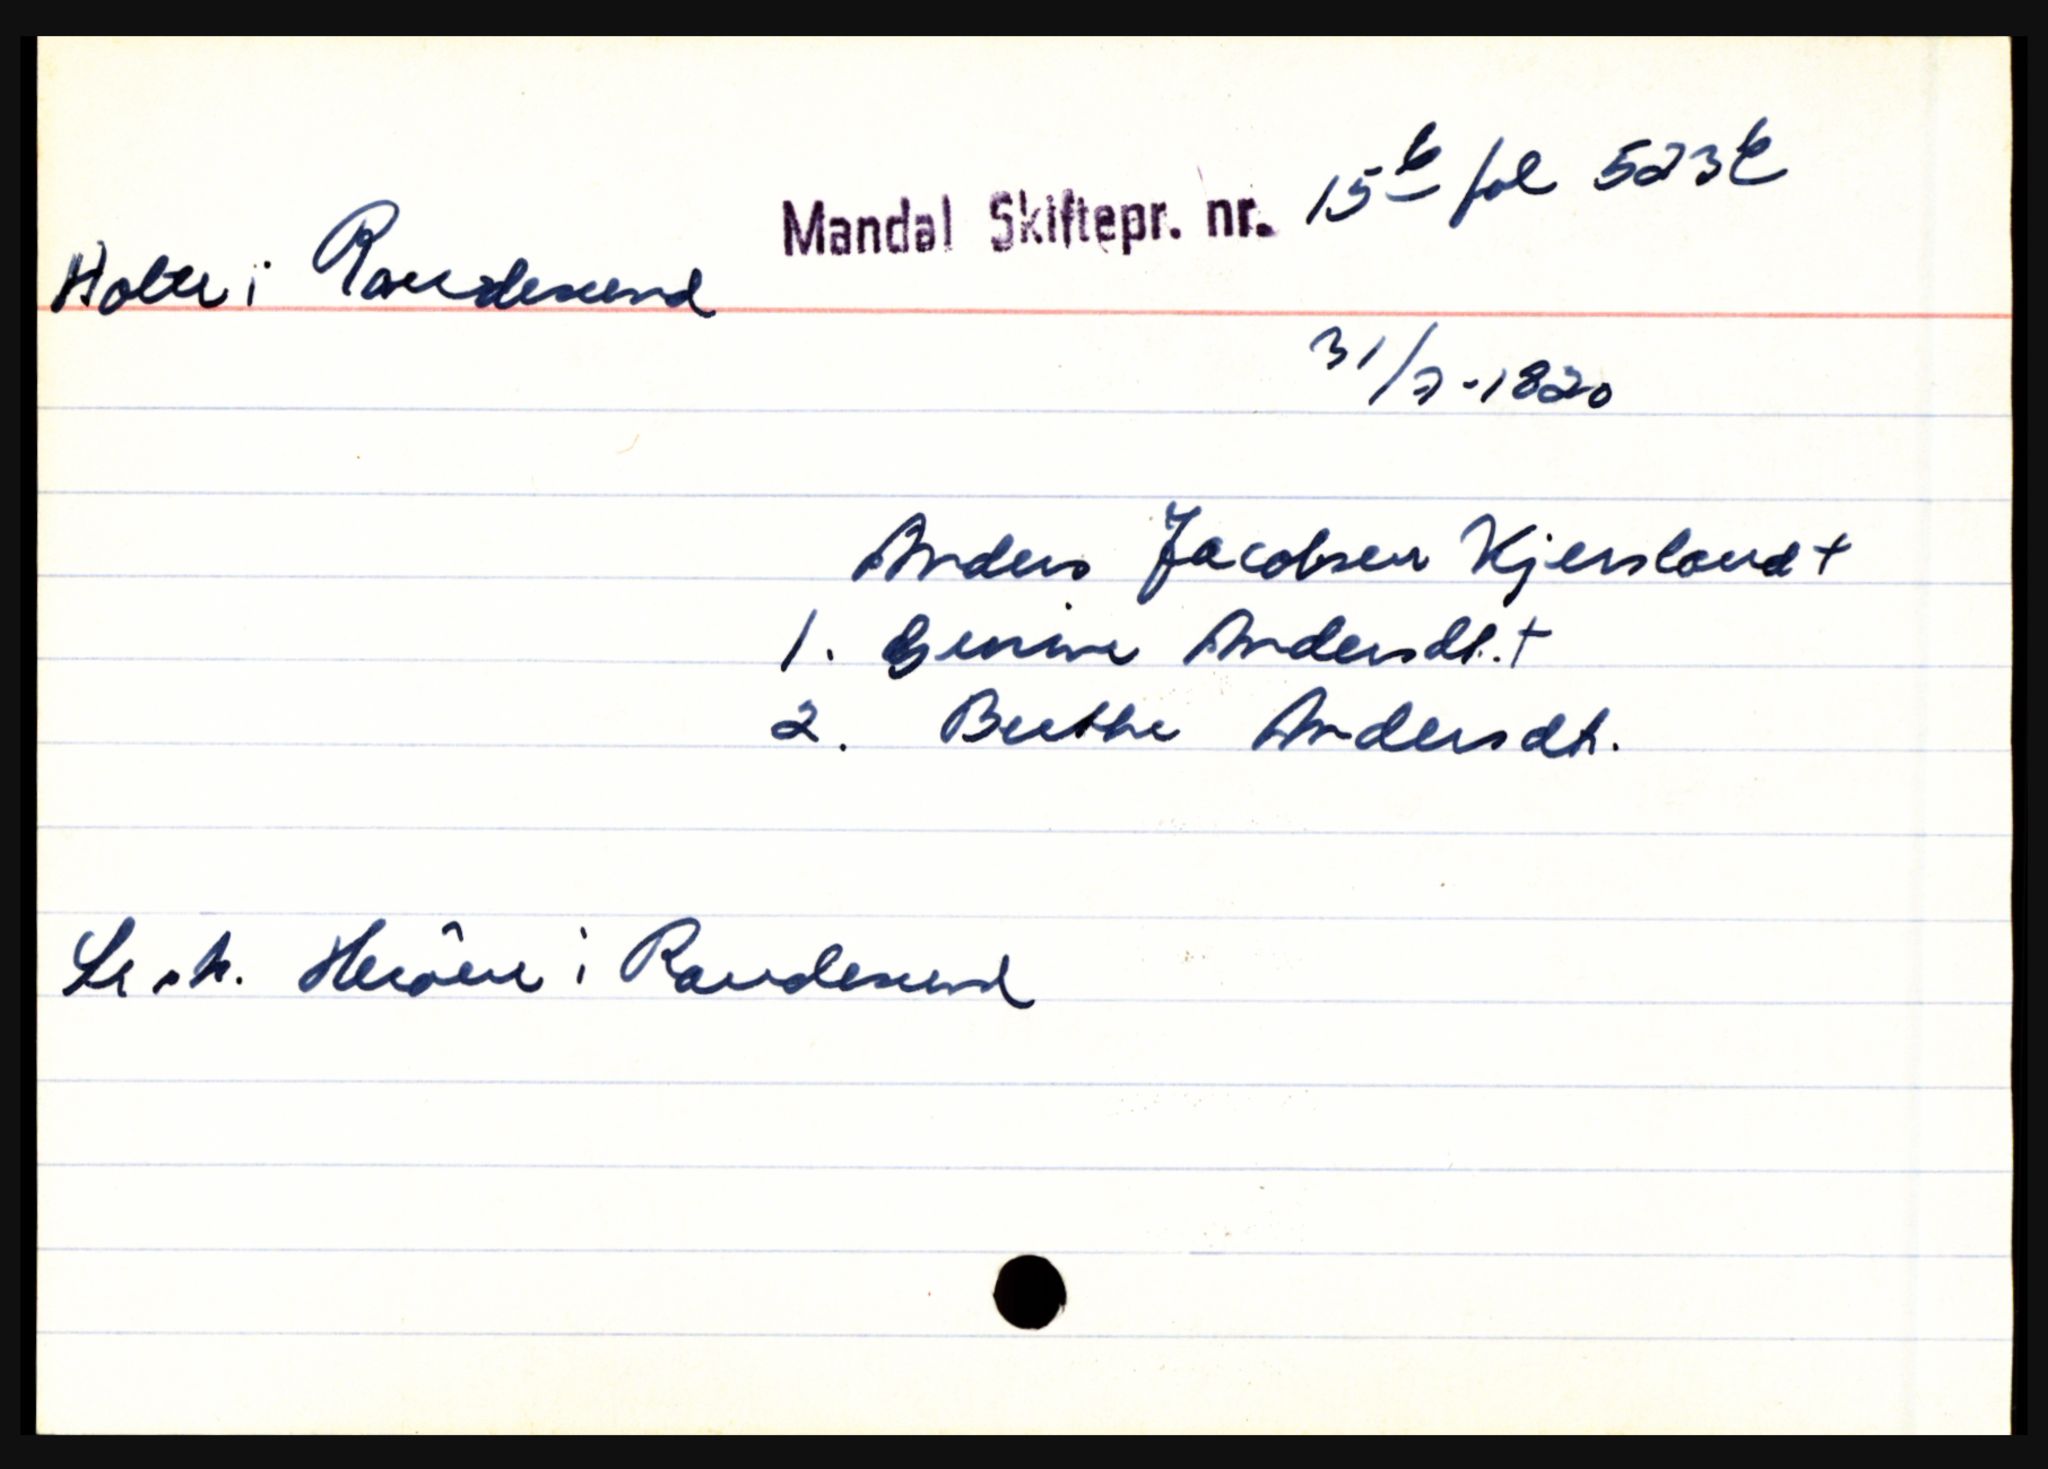 Mandal Skiftepr. nr. 15b fol 523b
Holte i Randesund
31/7-1820
Anders Jacobsen Kjersland +
1. Andersdt. +
2. Berthe Andersdt.
Se sk. Herøen i Randesund